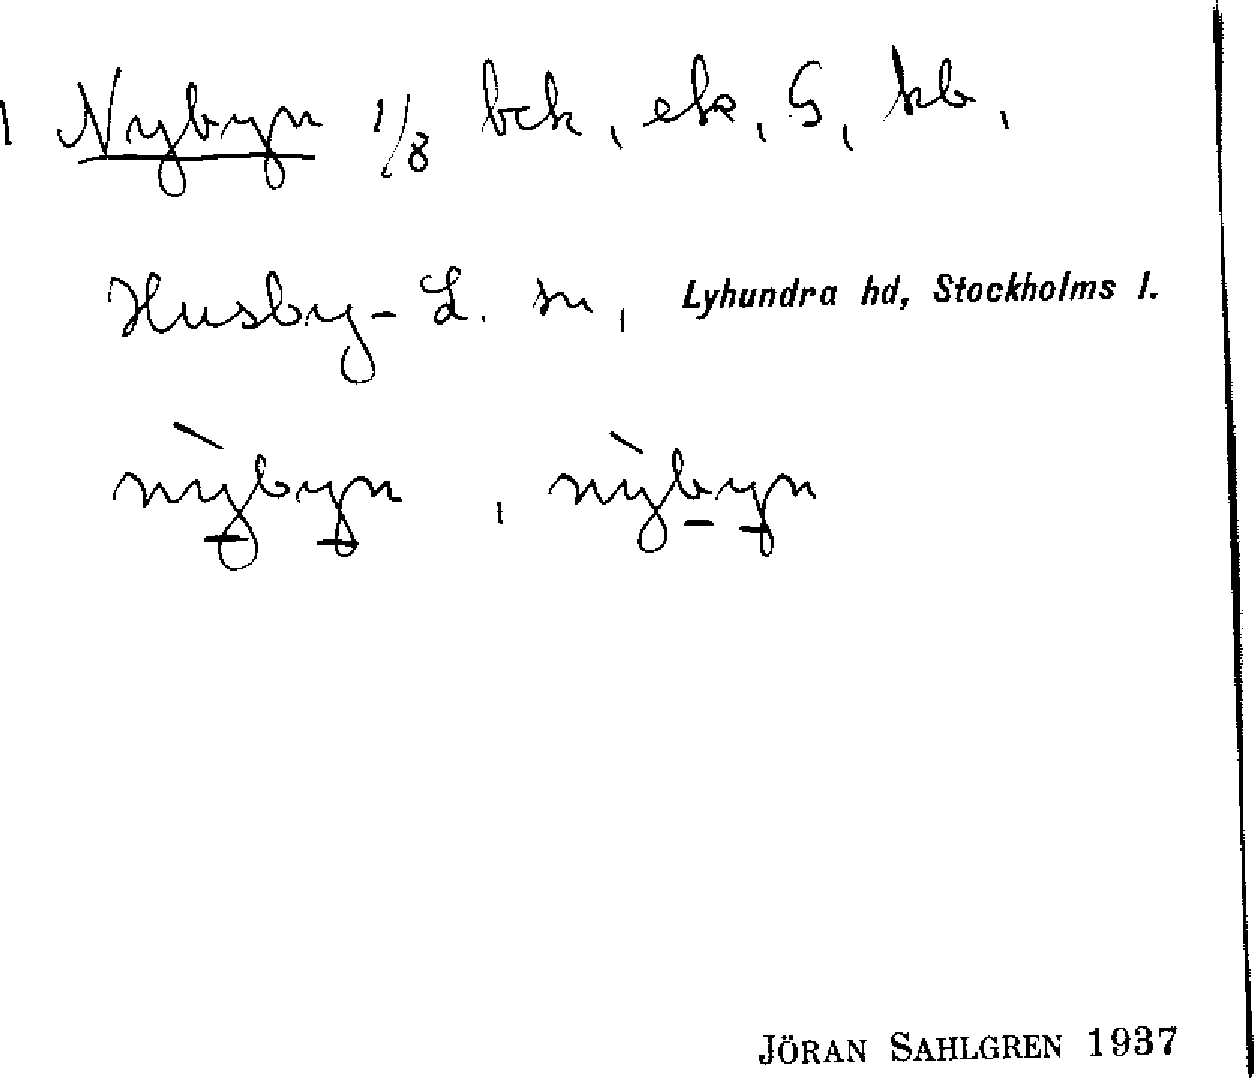 Nybyn 1/8 bck, ek, G, kb,
Husby-L. sn, Lyhundra hd, Stockholms l.
nỳbyn, nỳbyn
JÖRAN SAHLGREN 1937